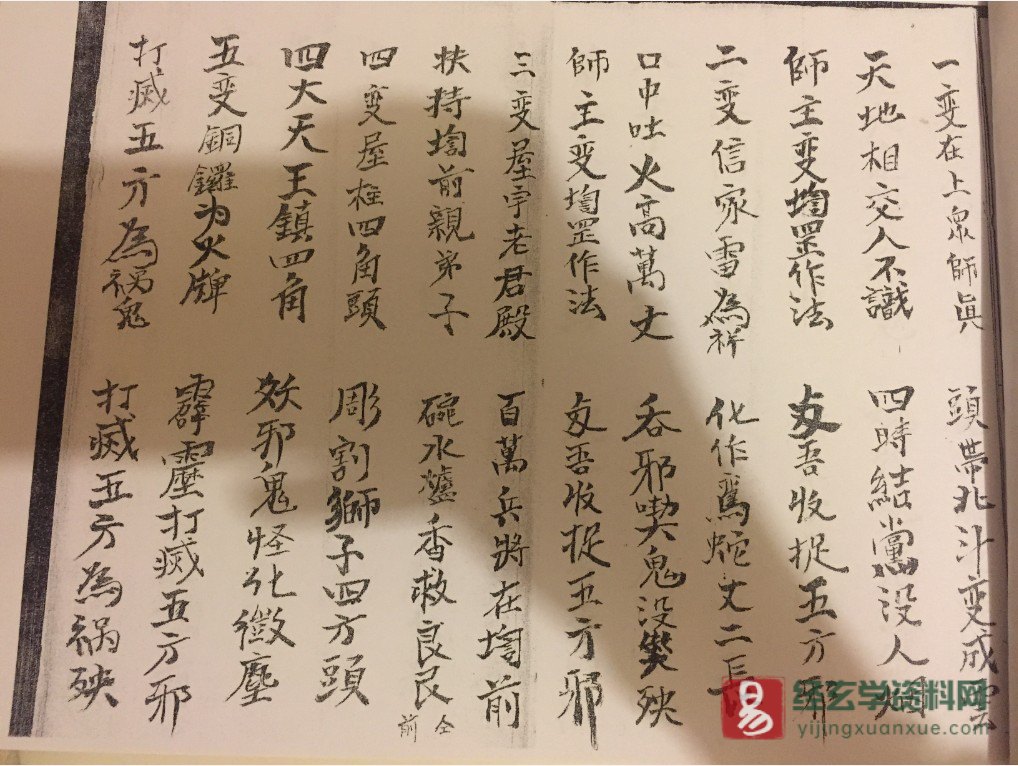 一变在上眾師真 頭帶北斗变成
天地相交人不識 四時結黨没人
師主变壇罡作法 交吾收捉五方邪
二变信家雷為祥 化作蛇丈二長
口中吐火高萬丈 吞邪喫鬼没殃
師主变壇罡作法 交吾收捉五方邪
三变屋宇老君殿 百萬兵將在壇前
扶持壇前親弟子 碗水爐香救良民
仝前
四变屋柱四角頭 彫割獅子四方頭
四大天王鎮四角 妖邪鬼怪化微塵
五变銅鑼为火牌 霹靂打滅五方邪
打滅五方為祸鬼 打滅五方為祸殃
易 纸玄学资料网
yijingxuanxue.com